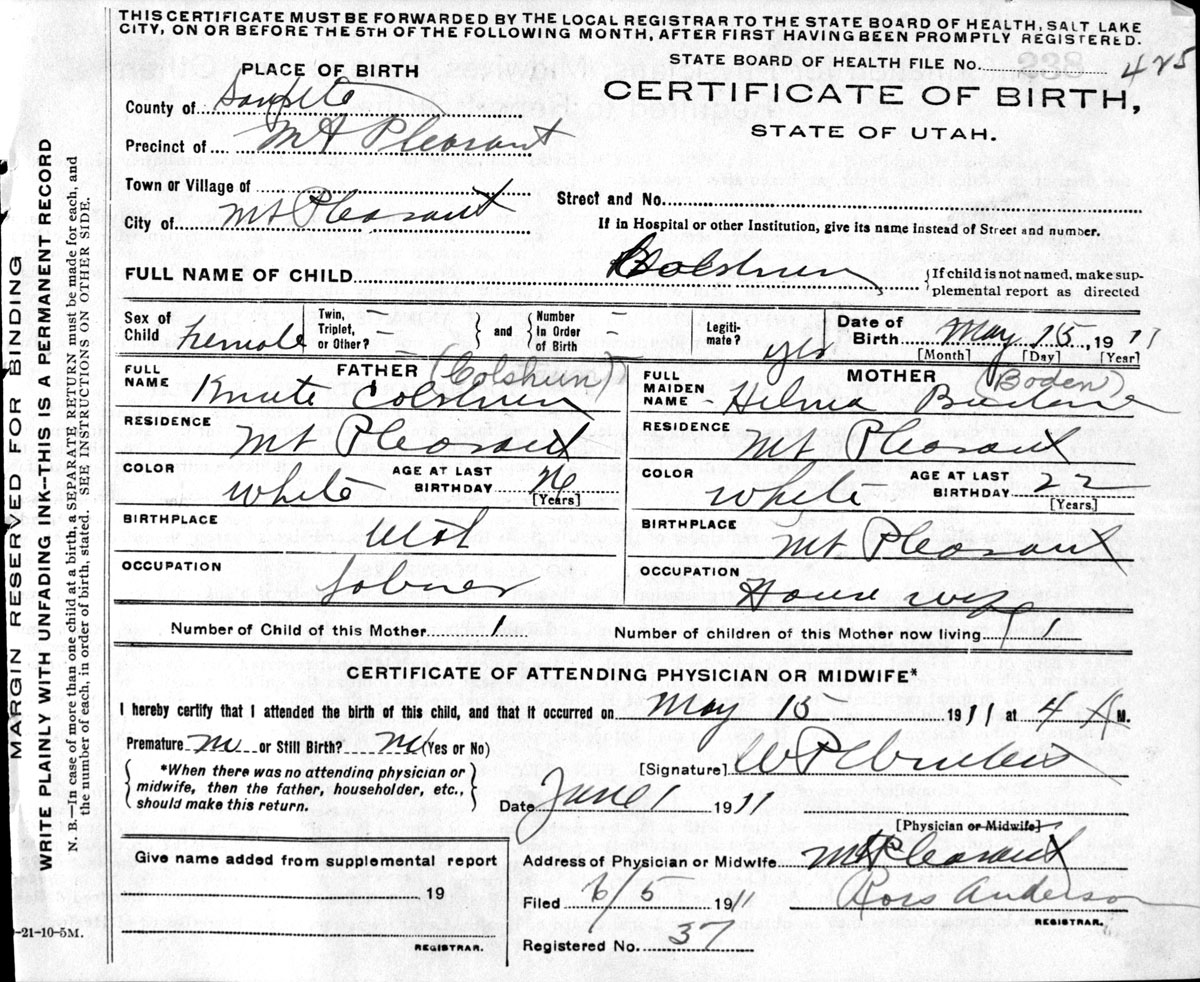 THIS CERTIFICATE MUST BE FORWARDED BY THE LOCAL REGISTRAR TO THE STATE BOARD OF HEALTH, SALT LAKE
CITY, ON OR BEFORE THE 5TH OF THE FOLLOWING MONTH, AFTER FIRST HAVING BEEN PROMPTLY REGISTERED.
STATE BOARD OF HEALTH FILE NO. 425
PLACE OF BIRTH
CERTIFICATE OF BIRTH,
STATE OF UTAH.
County of Sanpete
Precinct of Mt Pleasant
Town or Village of
Street and No.
City of Mt Pleasant
If in Hospital or other Institution, give its name instead of Street and number.
FULL NAME OF CHILD Colshun
{If child is not named, make sup-
plemental report as directed
Sex of Child Female
Twin, Triplet, or Other? –
and Number in Order of Birth –
Legiti-mate? yes
Date of Birth May 15, 1911
[Month] [Day] [Year]
FATHER (Colshun)
FULL NAME Knute Colshun
MOTHER (Boden)
FULL MAIDEN NAME Hilma
RESIDENCE Mt Pleasant
RESIDENCE Mt Pleasant
COLOR White
AGE AT LAST BIRTHDAY [Years]
COLOR White
AGE AT LAST BIRTHDAY 22 [Years]
BIRTHPLACE Utah
BIRTHPLACE Mt Pleasant
OCCUPATION Laborer
OCCUPATION House wife
Number of Child of this Mother 1
Number of children of this Mother now living 1
CERTIFICATE OF ATTENDING PHYSICIAN OR MIDWIFE*
I hereby certify that I attended the birth of this child, and that it occurred on May 15 1911 at 4 A M.
Premature no or Still Birth? no (Yes or No)
{*When there was no attending physician or
midwife, then the father, householder, etc.,
should make this return.}
[Signature]
Date June 1 1911
[Physician or Midwife]
Give name added from supplemental report
19
REGISTRAR.
Address of Physician or Midwife Mt Pleasant
Filed 6/5 1911
Ross Anderson
REGISTRAR.
Registered No. 37
MARGIN RESERVED FOR BINDING
WRITE PLAINLY WITH UNFADING INK--THIS IS A PERMANENT RECORD
N. B.—In case of more than one child at a birth, a SEPARATE RETURN must be made for each, and
the number of each, in order of birth, stated. SEE INSTRUCTIONS ON OTHER SIDE.
-21-10-5M.